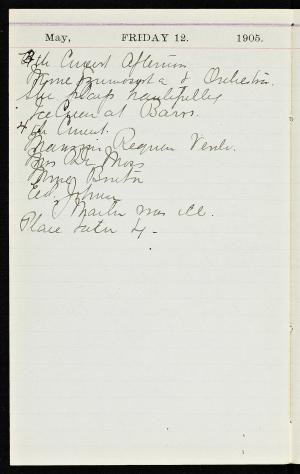 May, FRIDAY 12. 1905.
4th Concert Afternoon
Mme & Orchestra.
She plays beautifully
Icecream at Barrs.
4th Concert.
Manzoni Requiem Verdi.
Miss De Moss
Mme Bouton
Ed. Johnson
Martin was ill.
Place Sutu 4 -